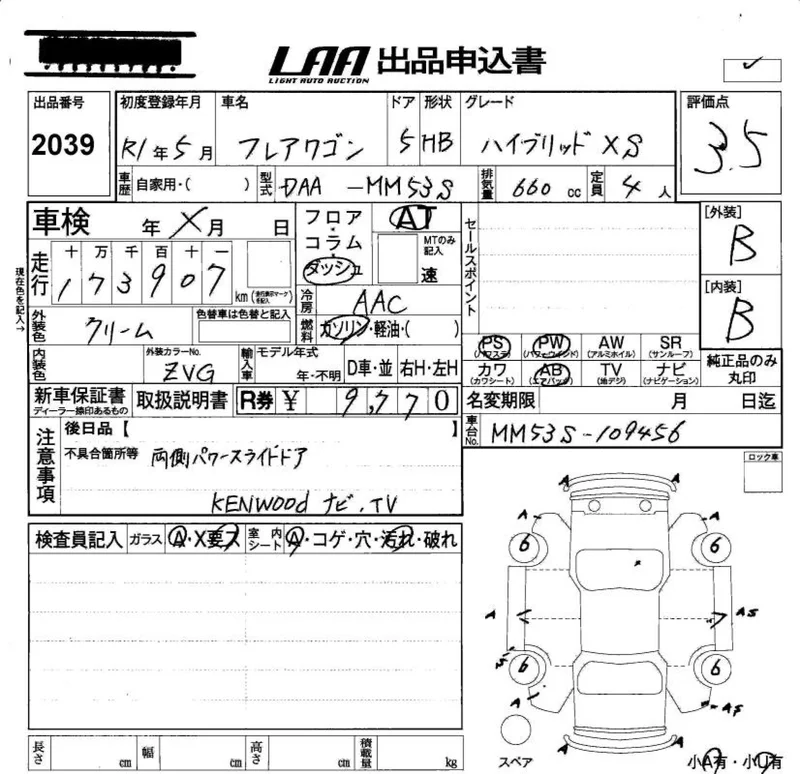 LAA 出品申込書
LIGHT AUTO AUCTION
出品番号 2039
初度登録年月 R1年5月
車名 フレアワゴン
ドア 5
形状 HB
グレード ハイブリッド XS
評価点 3.5
車歴 自家用・( )
型式 DAA-MM53S
排気量 660cc
定員 4人
車検 年 X月 日
フロア・コラム・ダッシュ
AT
MTのみ記入
速
セールスポイント
[外装] B
[内装] B
現在色を記入→
走行 十 万 千 百 十 一
1 7 3 9 0 7 km
冷房 AAC
燃料 ガソリン・軽油・( )
外装色 クリーム
色替車は色替と記入
PS (パワステ) PW (パワーウインド) AW (アルミホイル) SR (サンルーフ)
カワ (カワシート) AB (エアバッグ) TV (地デジ) ナビ (ナビゲーション)
純正品のみ丸印
内装色
外装カラーNo. ZVG
輸入車 モデル年式 年・不明
D車・並 右H・左H
名変期限 月 日迄
新車保証書 ディーラー捺印あるもの
取扱説明書
R券 ¥ 9,770
車台No. MM53S-109456
注意事項
後日品【 】
不具合箇所等 両側パワースライドドア
KENWOOD ナビ、TV
ロック車
検査員記入 ガラス A・X要ス 室内シート A・コゲ・穴・汚れ・破れ
A
A
A A
6 6
A AS
S
6 6
A AS
A A
スペア
小A有・小U有
長さ cm 幅 cm 高さ cm 積載量 kg